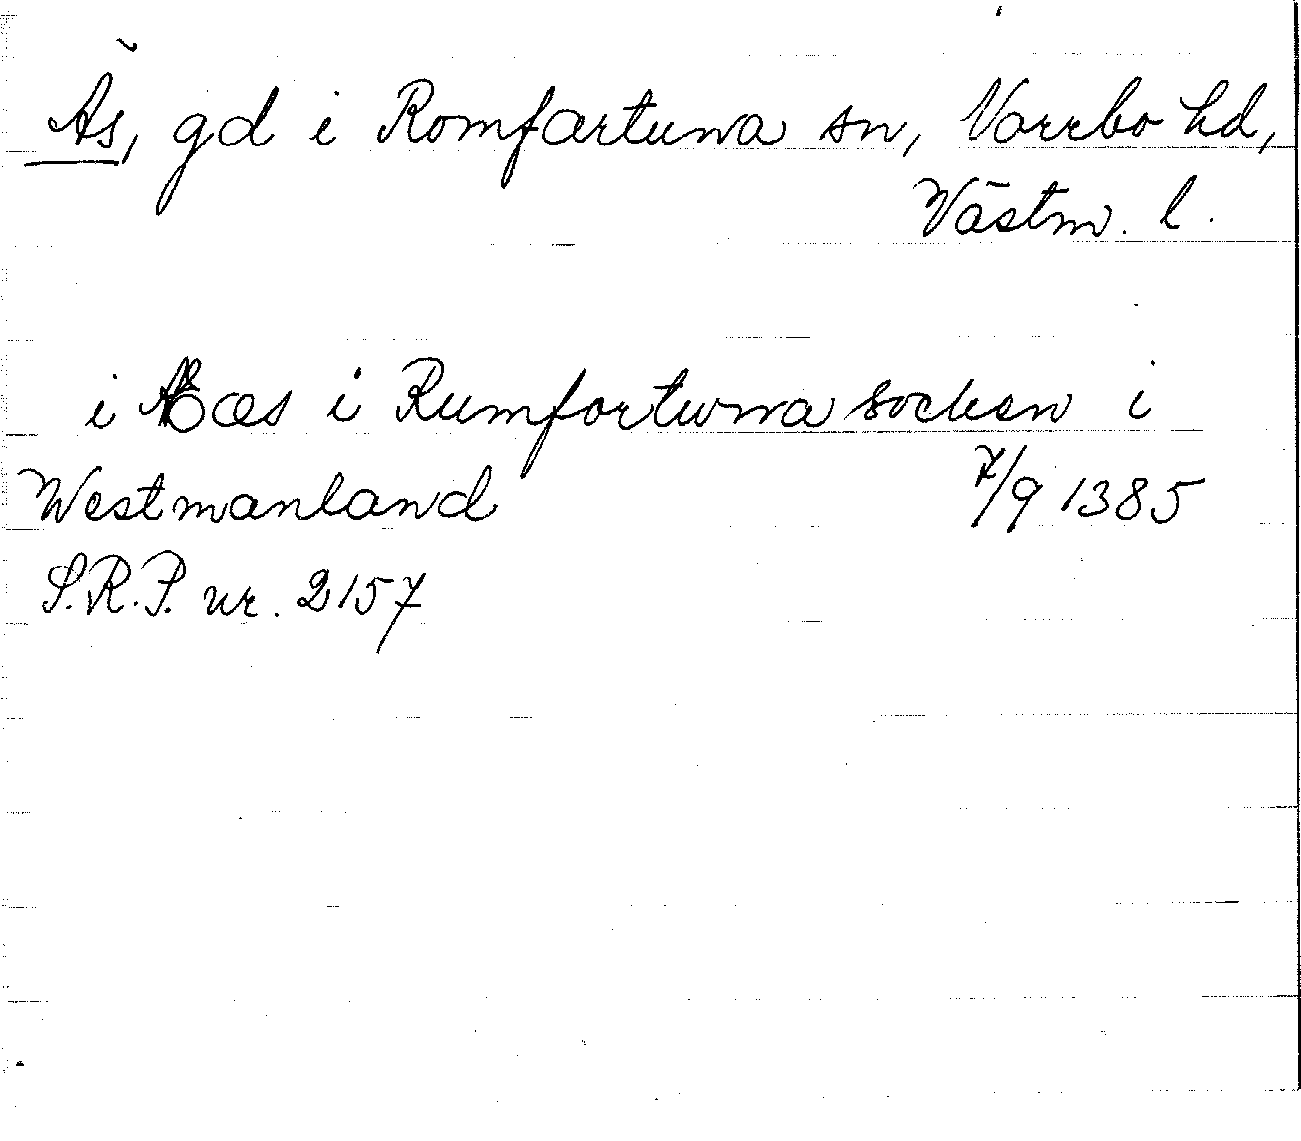 Ås, gd i Romfartuna sn, Norrbo hd,
Västm. l.
i Aas i Rumfortuna socken i
Westmanland 7/9 1385
S.R.P. nr. 2157